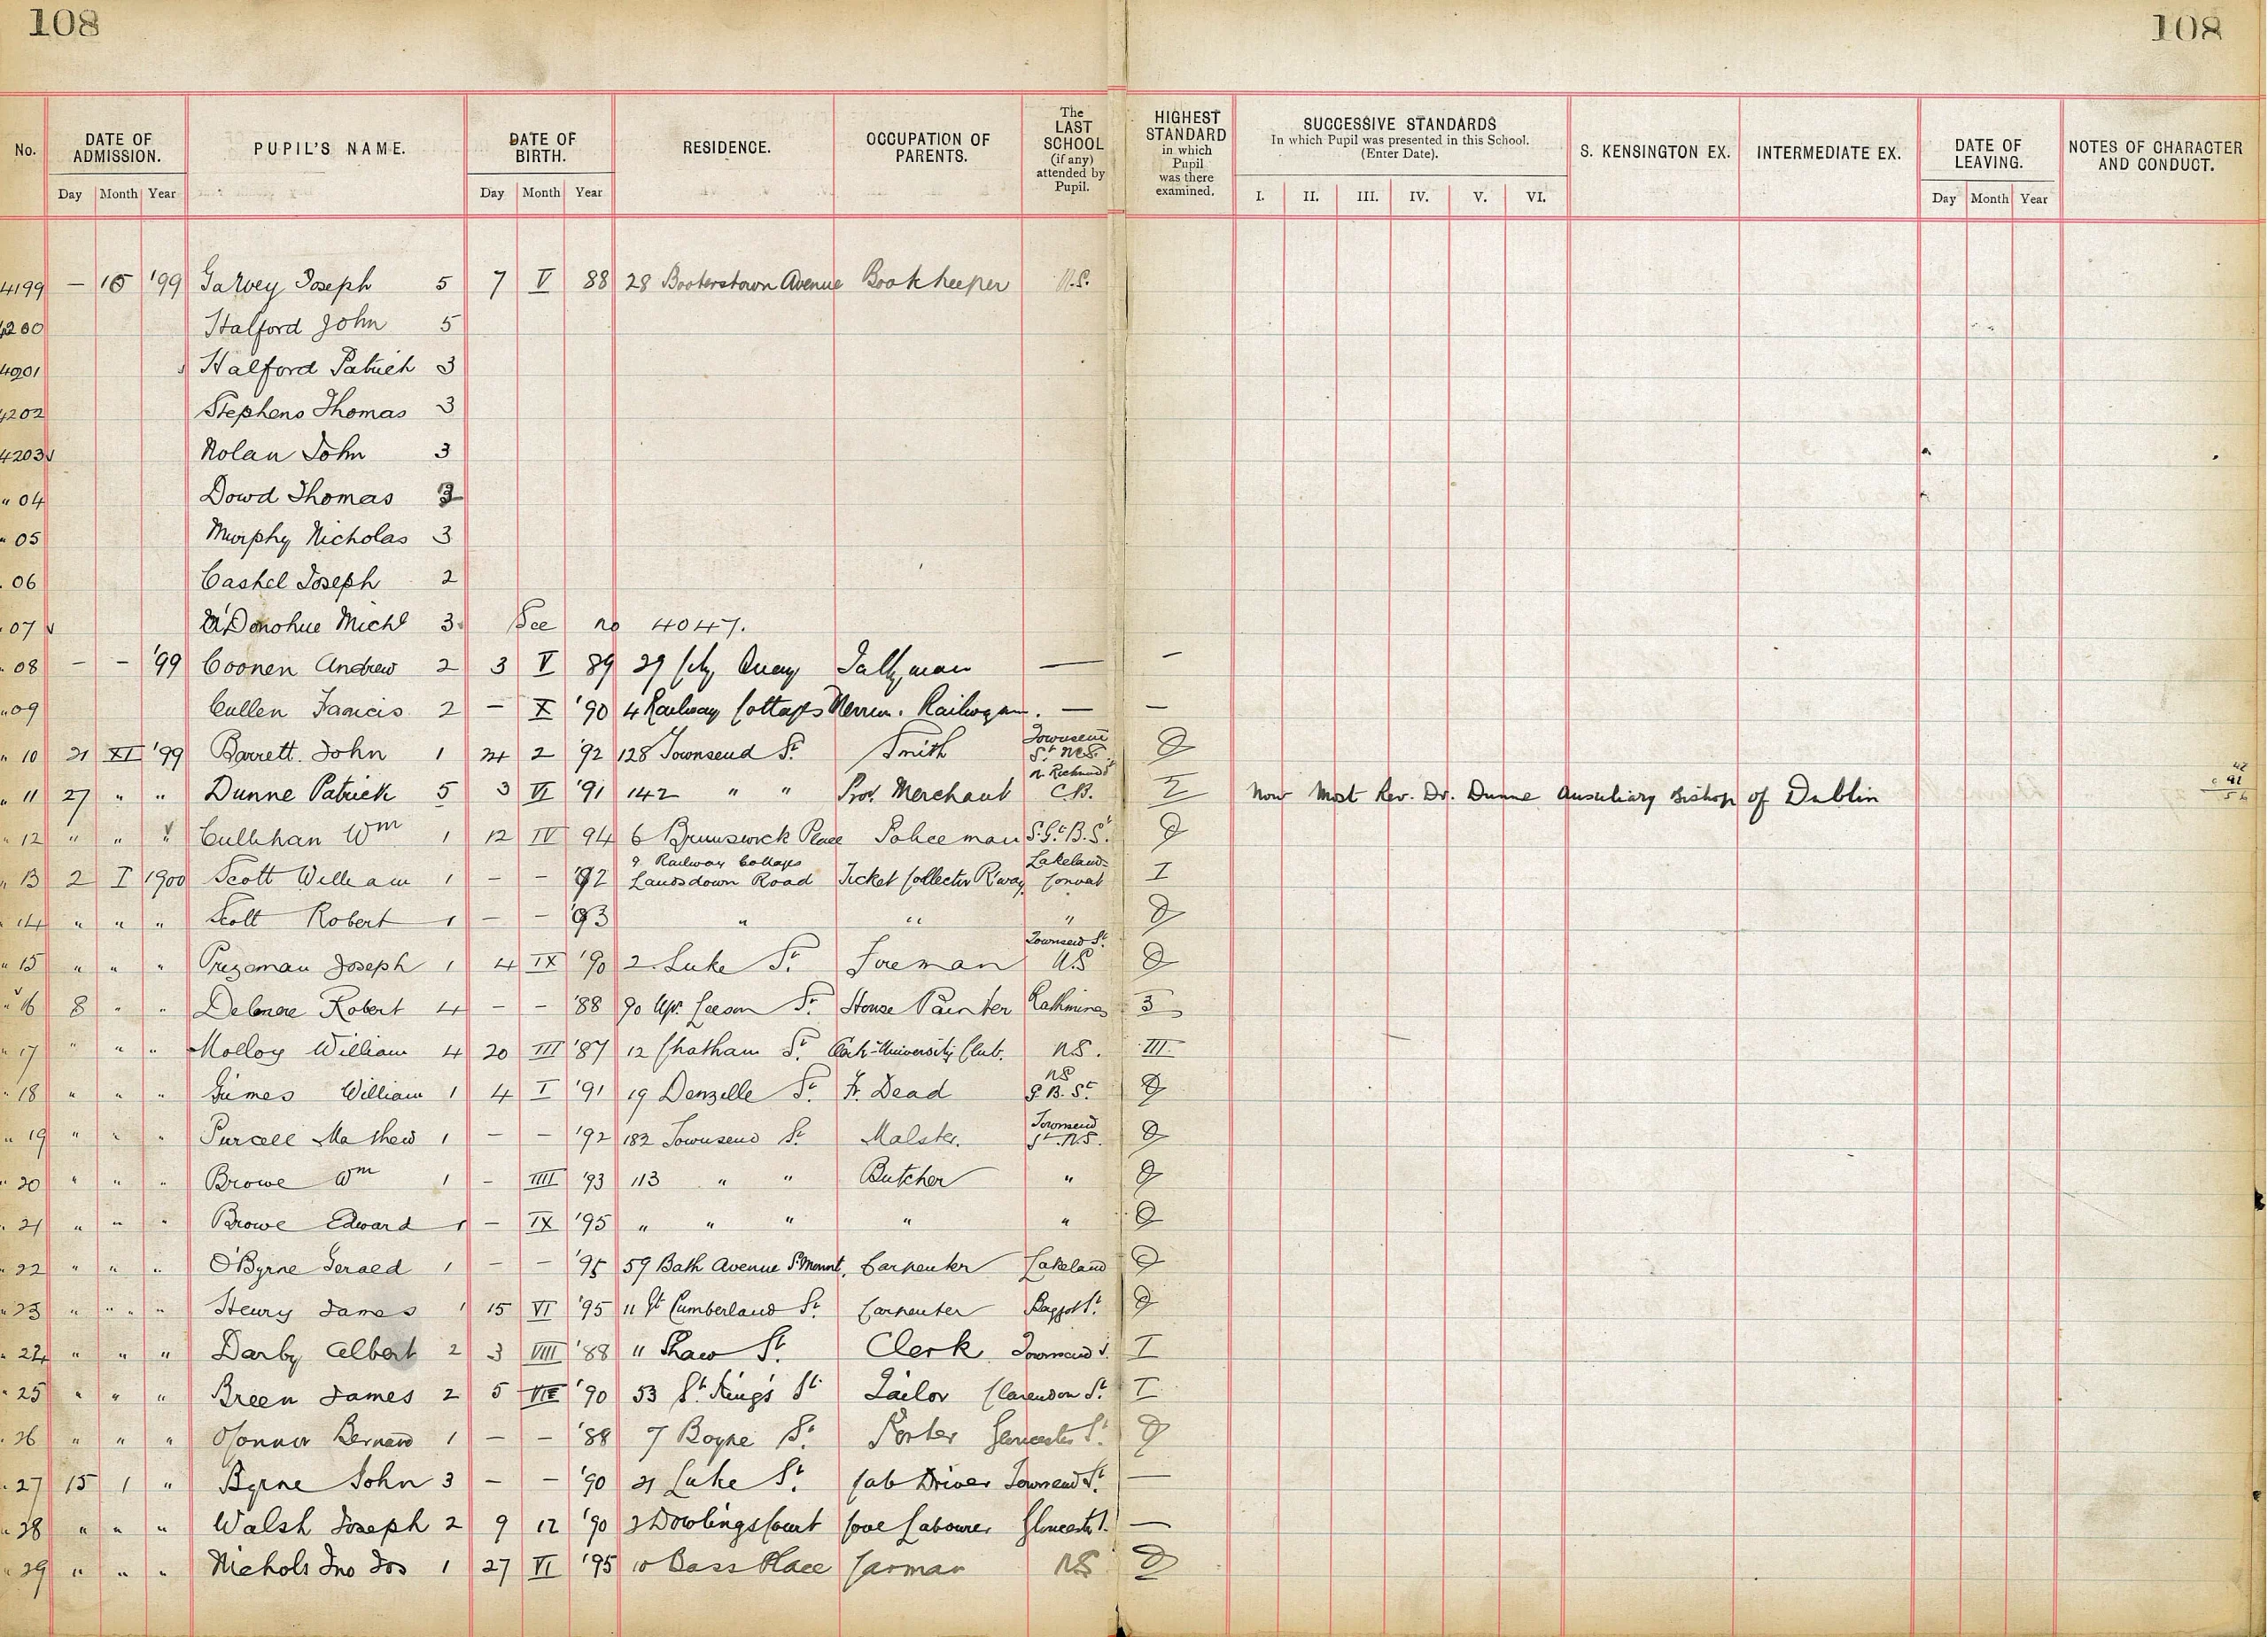 108 108
No. DATE OF ADMISSION. PUPIL'S NAME. DATE OF BIRTH. RESIDENCE. OCCUPATION OF PARENTS. The LAST SCHOOL (if any) attended by Pupil. HIGHEST STANDARD in which Pupil was there examined. SUCCESSIVE STANDARDS In which Pupil was presented in this School. (Enter Date). S. KENSINGTON EX. INTERMEDIATE EX. DATE OF LEAVING. NOTES OF CHARACTER AND CONDUCT.
Day Month Year Day Month Year I. II. III. IV. V. VI. Day Month Year
4199 — '99 Garvey Joseph 5 7 V 88 28 Booterstown Avenue Bookkeeper N.S.
4200 Halford John 5
4201 Halford Patrick 3
4202 Stephens Thomas 3
4203 Nolan John 3
" 04 Dowd Thomas
" 05 Murphy Nicholas 3
" 06 Cashel Joseph 2
" 07 Donohue Michl 3 See no 4047.
" 08 — — '99 Coonen Andrew 2 3 V 89 29 City Quay Tallyman — —
" 09 Cullen Francis 2 — X '90 4 Railway Cottages Merrion. — —
" 10 21 XI '99 Barrett John 1 24 2 '92 128 Townsend St. Smith Townsend St. N.S. 0
" 11 27 " " Dunne Patrick 5 3 VI '91 142 " " Prov. Merchant N. Richmond St C.B. Now Most Rev. Dr. Dunne Auxiliary Bishop of Dublin
" 12 " " " Cullihan Wm 1 12 IV 94 6 Brunswick Place Policeman 0
" 13 2 I 1900 Scott William 1 — — '92 9 Railway Cottages Lansdown Road Ticket Collector R'way Lakelands Convent I
" 14 " " " Scott Robert 1 — — '93 " " " 0
" 15 " " " Joseph 1 4 IX '90 2 Luke St. Foreman Townsend St. N.S 0
" 16 8 " " Delmere Robert 4 — — '88 90 Upr. Leeson St. House Painter Rathmines 3
" 17 " " " Molloy William 4 20 III '87 12 Chatham St. University Club. N.S. III
" 18 " " " William 1 4 I '91 19 Denzille St. Fr. Dead NS G.B. St. 0
" 19 " " " Purcell Mathew 1 — — '92 182 Townsend St. Malster. Townsend St. N.S. 0
" 20 " " " Browe Wm 1 — IIII '93 113 " " Butcher " 0
" 21 " " " Browe Edward 1 — IX '95 " " " " " 0
" 22 " " " O'Byrne Gerald 1 — — '95 59 Bath Avenue S'Mount, Carpenter Lakeland 0
" 23 " " " Henry James 1 15 VI '95 11 Gt Cumberland St. Carpenter Baggot St. 0
" 24 " " " Darby Albert 2 3 VIII '88 11 Shaw St. Clerk Townsend S. I
" 25 " " " Breen James 2 5 VII '90 53 St. King's St. Tailor Clarendon St. I
" 26 " " " O'Connor Bernard 1 — — '88 7 Boyne St. Porter Gloucester St. 0
" 27 15 1 " Byrne John 3 — — '90 21 Luke St. Cab Driver Townsend St. —
" 28 " " " Walsh Joseph 2 9 12 '90 2 Dowlings Court Labourer Gloucester —
" 29 " " " Nichols Jno Jos 1 27 VI '95 10 Bass Place Carman NS 0